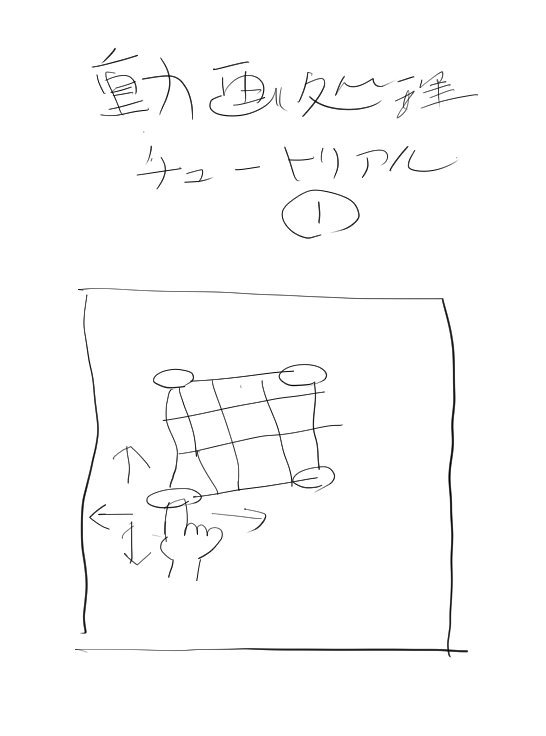 動画処理
チュートリアル
①